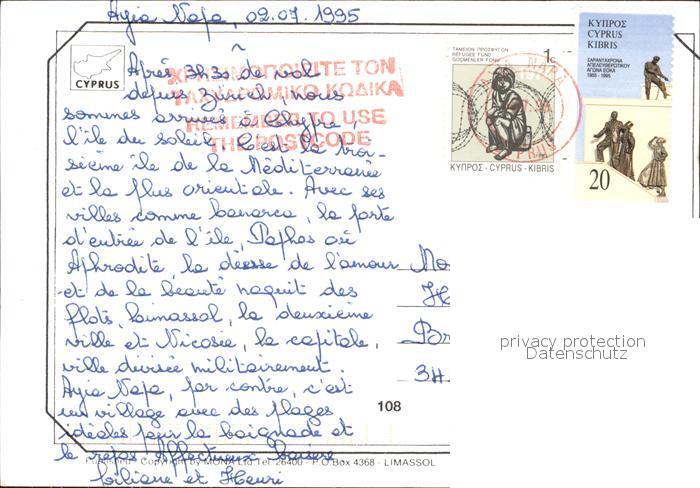 Ayia Napa, 02.07.1995
CYPRUS
Après 3h30 de vol
depuis Zurich, nous
sommes arrivés à Chypre,
l'île du soleil. C'est la troi-
sième île de la Méditerranée
et la plus orientale. Avec ses
villes comme Lanarca, la porte
d'entrée de l'île, Paphos où
Aphrodite, la déesse de l'amour
et de la beauté naquit des
flots, Limassol, la deuxième
ville et Nicosie, la capitale,
ville divisée militairement.
Ayia Napa, par contre, c'est
un village avec des plages
idéales pour la baignade et
le repos. Affectueux baisers
Liliane et Henri
ΧΡΗΣΙΜΟΠΟΙΕΙΤΕ ΤΟΝ
ΤΑΧΥΔΡΟΜΙΚΟ ΚΩΔΙΚΑ
REMEMBER TO USE
THE POSTCODE
ΤΑΜΕΙΟΝ ΠΡΟΣΦΥΓΩΝ
REFUGEE FUND
GÖÇMENLER FONU
1c
ΚΥΠΡΟΣ - CYPRUS - KIBRIS
ΚΥΠΡΟΣ
CYPRUS
KIBRIS
ΣΑΡΑΝΤΑΧΡΟΝΑ
ΑΠΕΛΕΥΘΕΡΩΤΙΚΟΥ
ΑΓΩΝΑ ΕΟΚΑ
1955 - 1995
20
Br
3H
privacy protection
Datenschutz
108
Copyright by MONA Ltd Tel. 26400 - P.O.Box 4368 - LIMASSOL